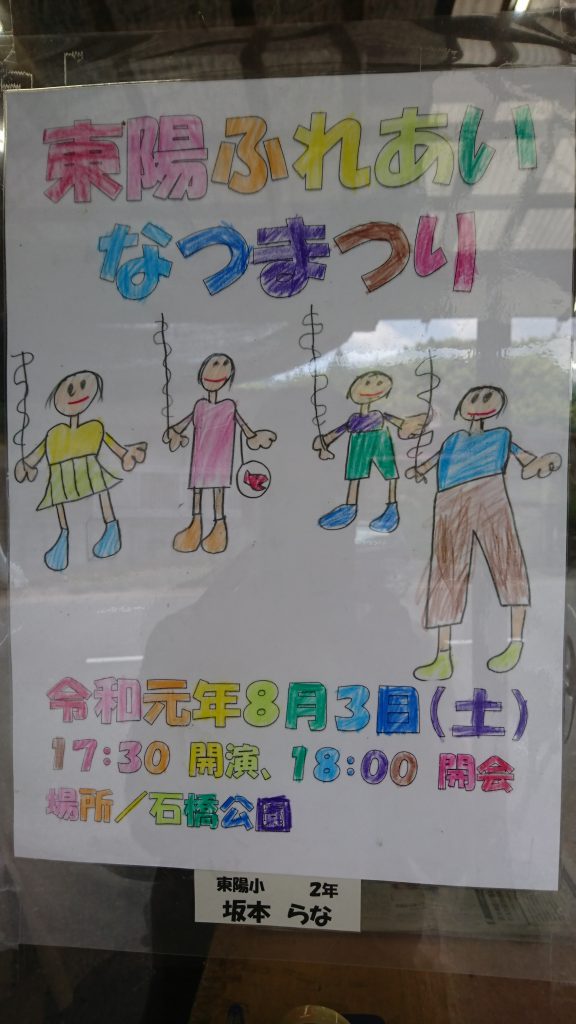 東陽ふれあい
なつまつり
令和元年8月3日(土)
17:30 開演、18:00 開会
場所／石橋公園
東陽小 2年
坂本 らな